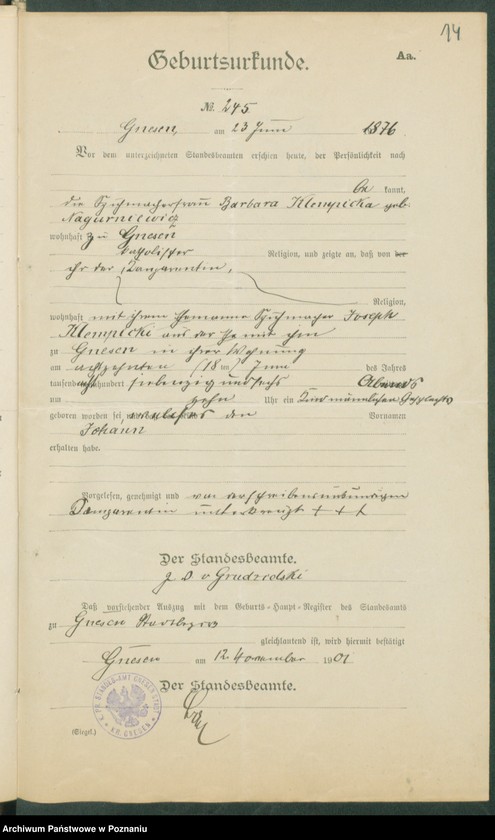 14
Geburtsurkunde.
Aa.
Nr. 245.
Gnesen, am 23 Juni 1876
Vor dem unterzeichneten Standesbeamten erschien heute, der Persönlichkeit nach
kannt,
die Barbara Klempicka geb.
Nagurniewicz
wohnhaft zu Gnesen
katholischer Religion, und zeigte an, daß von der
ihr der
Religion,
wohnhaft mit ihrem Ehemanne Joseph
Klempicki aus der Ehe mit ihm
zu Gnesen in ihrer Wohnung
am achtzehnten (18 ten) Juni des Jahres
tausend achthundert siebenzig und sechs Abends
um zehn Uhr ein Kind männlichen Geschlechts
geboren worden sei, welches den Vornamen
Johann
erhalten habe.
Vorgelesen, genehmigt und von der schreibensunkundigen
unterkreuzt + + +
Der Standesbeamte.
Daß vorstehender Auszug mit dem Geburts-Haupt-Register des Standesamts
zu Gnesen Stadtbezirk
gleichlautend ist, wird hiermit bestätigt
Gnesen am 12 November 1901
Der Standesbeamte.
(Siegel.)
Archiwum Państwowe w Poznaniu